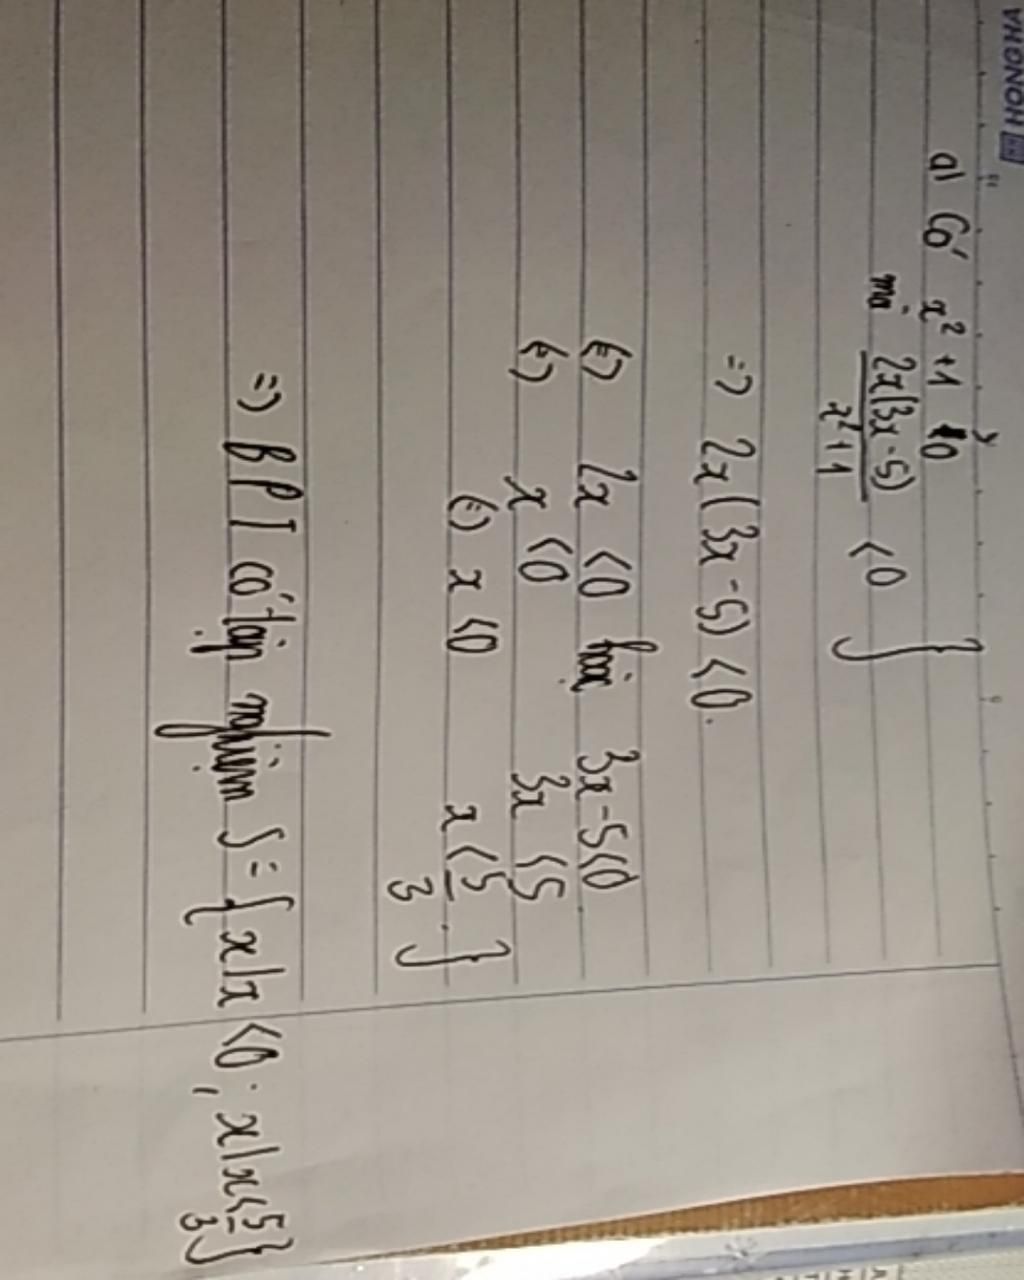 VHONOH
a) Có x² + 1 > 0
mà 2x(3x-5)/x²+1 < 0 }
=> 2x(3x-5) < 0.
<=> 2x < 0 hoặc 3x-5<0
<=> x < 0 3x < 5
<=> x < 0 x < 5/3. }
=> BPT có tập nghiệm S = { x/x < 0; x/x < 5/3 }